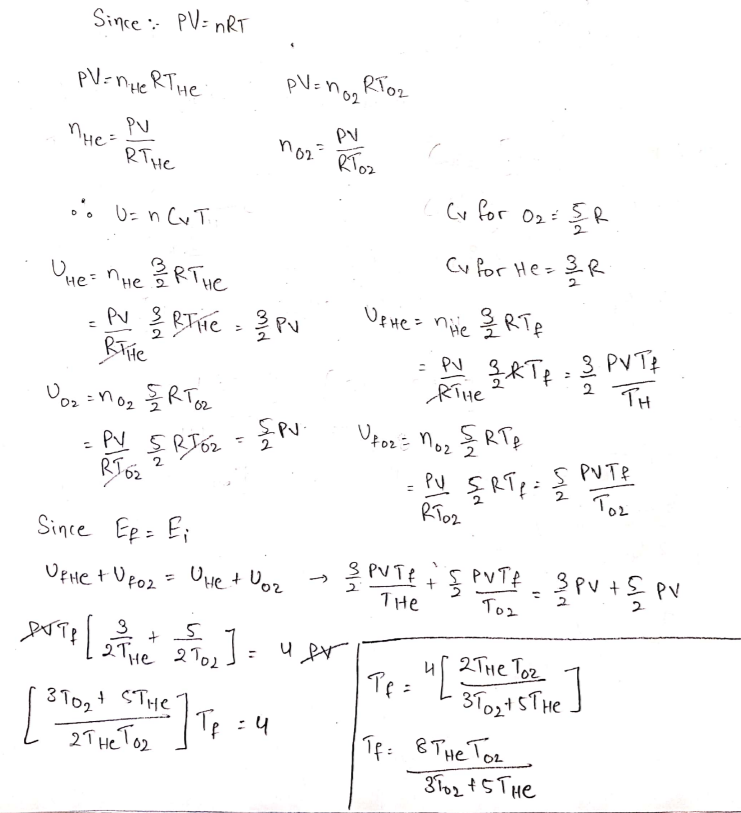 Since :- PV = nRT
PV = n_He R T_He    PV = n_O2 R T_O2
n_He = PV / R T_He    n_O2 = PV / R T_O2
∴ U = n Cv T    Cv for O2 = 5/2 R
U_He = n_He 3/2 R T_He    Cv for He = 3/2 R
= PV / R T_He 3/2 R T_He = 3/2 PV    U_fHe = n_He 3/2 R T_f
= PV / R T_He 3/2 R T_f = 3/2 PV T_f / T_H
U_O2 = n_O2 5/2 R T_O2
= PV / R T_O2 5/2 R T_O2 = 5/2 PV    U_fO2 = n_O2 5/2 R T_f
= PV / R T_O2 5/2 R T_f = 5/2 PV T_f / T_O2
Since E_f = E_i
U_fHe + U_fO2 = U_He + U_O2 → 3/2 PV T_f / T_He + 5/2 PV T_f / T_O2 = 3/2 PV + 5/2 PV
PV T_f [ 3 / 2T_He + 5 / 2T_O2 ] = 4 PV
[ 3T_O2 + 5T_He / 2T_He T_O2 ] T_f = 4
T_f = 4 [ 2T_He T_O2 / 3T_O2 + 5T_He ]
T_f = 8T_He T_O2 / 3T_O2 + 5T_He